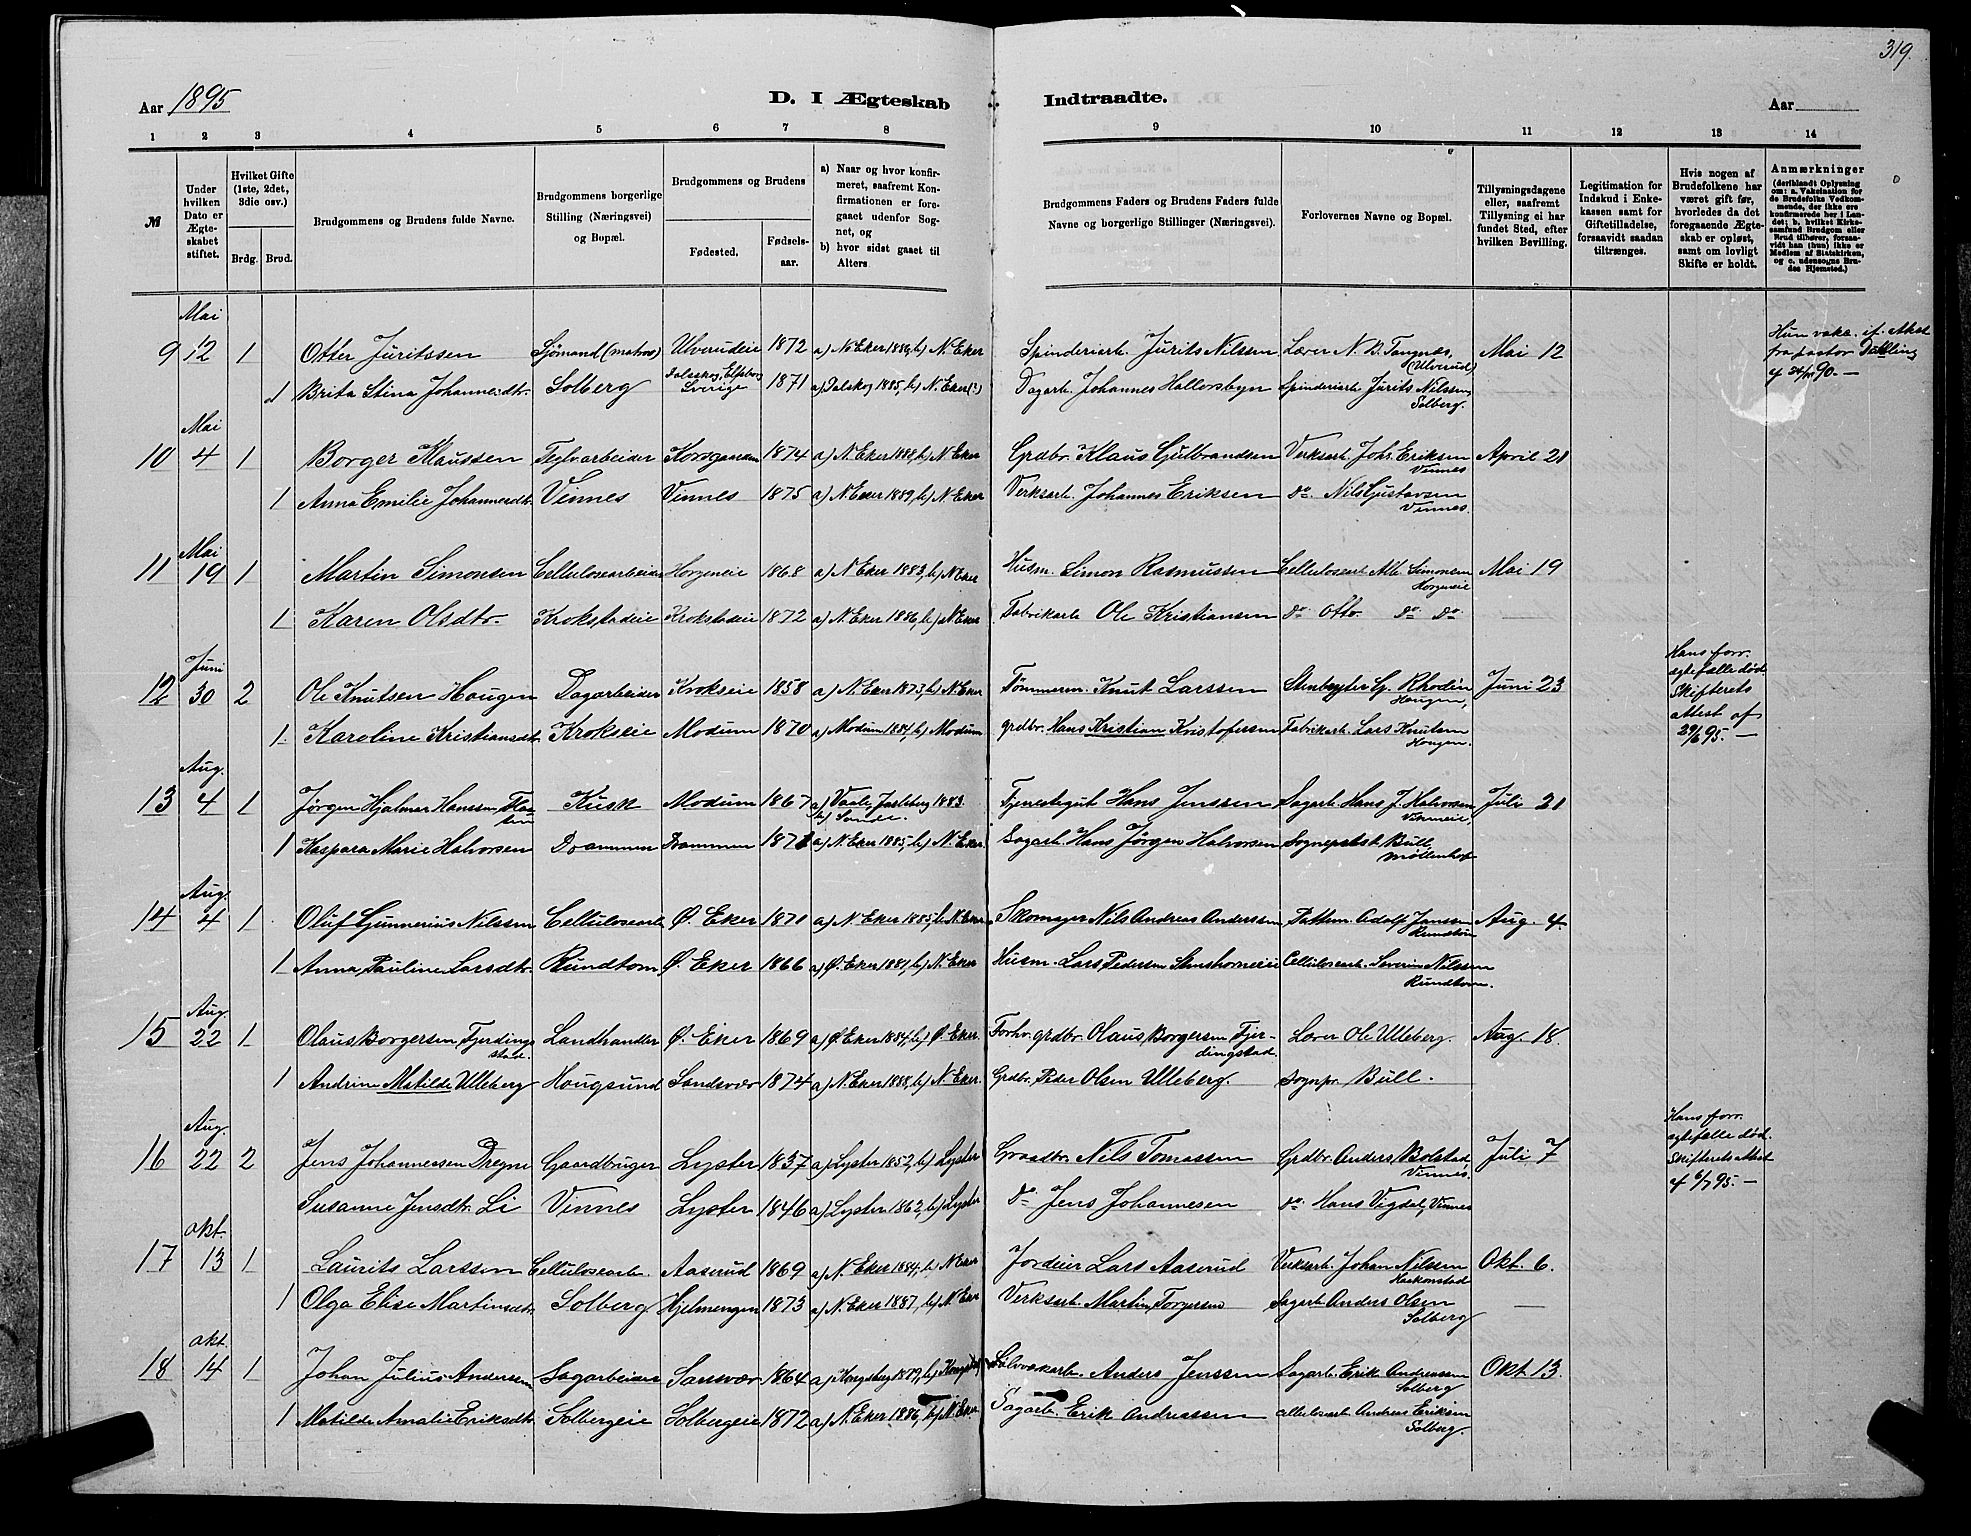 319.
Aar 1895
D. I Ægteskab Indtraadte.
Aar
1 2 3 4 5 6 7 8 9 10 11 12 13 14
№
Under hvilken Dato er Ægteskabet stiftet.
Hvilket Gifte (1ste, 2det, 3die osv.)
Brdg. Brud.
Brudgommens og Brudens fulde Navne.
Brudgommens borgerlige Stilling (Næringsvei) og Bopæl.
Brudgommens og Brudens
Fødested.
Fødselsaar.
a) Naar og hvor konfirmeret, saafremt Konfirmationen er foregaaet udenfor Sognet, og
b) hvor sidst gaaet til Alters
Brudgommens Faders og Brudens Faders fulde Navne og borgerlige Stillinger (Næringsvei).
Forlovernes Navne og Bopæl.
Tillysningsdagene eller, saafremt Tillysning ei har fundet Sted, efter hvilken Bevilling.
Legitimation for Indskud i Enkekassen samt for Giftetilladelse, forsaavidt saadan tiltrænges.
Hvis nogen af Brudefolkene har været gift før, hvorledes da det foregaaende Ægteskab er opløst, samt om lovligt Skifte er holdt.
Anmærkninger
(deriblandt Oplysning om: a. Vakcination for de Brudefolks Vedkommende, der ikke ere konfirmerede her i Landet; b. hvilket Kirkesamfund Brudgom eller Brud tilhører, forsaavidt han (hun) ikke er Medlem af Statskirken, og c. udensogns Brudes Hjemsted.)
Mai
9 12 1 Otter Juritssen Sjömand (matros) Ulverudeie 1872 a) N. Eker 1886, b) N. Eker Spinderiarb. Jurits Nilssen Lærer N. B. Tangnæs, (Ulverud) Mai 12 Hun vakc. if. Attest fra pastor
1 Brita Stina Johannesdtr. Solberg Dalskog, Elfsborg Sverige 1871 a) Dalskog 1885, b) N. Eker (?) Dagarb. Johannes Hallersbyn Spinderiarb. Jurits Nilssen, Solberg.
Mai
10 4 1 Borger Klaussen Teglvarbeider Korsgaarden 1874 a) N. Eker 1888, b) N. Eker Grdbr. Klaus Gulbrandsen Verksarb. Johs. Eriksen Vinnes April 21
1 Anna Emilie Johannesdtr. Vinnes Vinnes 1875 a) N. Eker 1889, b) N. Eker Verksarb. Johannes Eriksen do Nils Gustavsen Vinnes.
Mai
11 19 1 Martin Simonsen Cellulosearbeider Horgeneie 1868 a) N. Eker 1883, b) N. Eker Husm. Simon Rasmussen Cellulosearb. Alb. Simonsen Horgeneie Mai 19
1 Karen Olsdtr. Krokstadeie Krokstadeie 1872 a) N. Eker 1886, b) N. Eker Fabrikarb. Ole Kristiansen do Otto do do
Juni
12 30 2 Ole Knutsen Haugen Dagarbeider Krokseie 1858 a) N. Eker 1873, b) N. Eker Tömmerm. Knut Larssen Stenbryter G. Rhodin Haugen, Juni 23 Hans forr. egtefælle död. Skifterets attest af 29/6 95. —
1 Karoline Kristiansdtr. Krokseie Modum 1870 a) Modum 1884, b) Modum grdbr. Hans Kristian Kristofersen Fabrikarb. Lars Knutsen Haugen.
Aug.
13 4 1 Jørgen Hjalmar Hanssen, Kusk Modum 1867 a) Vaale, Jarlsberg 1883 Tjenestegut Hans Jenssen Sagarb. Hans J. Halvorsen, Vinneseie, Juli 21
1 Kaspara Marie Halvorsen Drammen Drammen 1871 a) N. Eker 1885, b) N. Eker. Sagarb. Hans Jørgen Halvorsen Sogneprest Bull, Möllenhof
Aug.
14 4 1 Oluf Gunnerius Nilssen Cellulosearb. Ø. Eker 1871 a) N. Eker 1885, b. N. Eker Skomager Nils Andreas Anderssen Pattem. Adolf Janssen Rundtom Aug. 4
1 Anna Pauline Larsdtr. Rundtom Ø. Eker 1866 a) Ø. Eker 1881, b) N. Eker Husm. Lars Pedersen Stenshorneie Cellulosearb. Severin Nilssen Rundtom.
Aug.
15 22 1 Olaus Borgersen Fjerdingstad. Landhandler Ø. Eker 1869 a) Ø. Eker 1884, b) Ø. Eker. Forhv. grdbr. Olaus Borgersen Fjerdingstad. Lærer Ole Ulleberg. Aug. 18.
1 Andrine Matilde Ulleberg Hougsund Sandsvær 1874 a) N. Eker 1888, b) N. Eker. Grdbr. Peder Olsen Ulleberg. Sognepr. Bull.
Aug.
16 22 2 Jens Johannessen Dregne Gaardbruger Lyster 1837 a) Lyster 1852, b) Lyster Graadbr. Nils Tomassen Grdbr. Anders Bolstad Vinnes. Juli 7 Hans forr. egtefælle död. Skifterets attest af 6/7 95. —
Susanne Jensdtr. Li Vinnes Lyster 1846 a) Lyster 1862, b) Lyster do Jens Johannesen do Hans Vigdal, Vinnes
Okt.
17 13 1 Laurits Larssen Cellulosearb. Aaserud 1869 a) N. Eker 1884, b) N. Eker Jordeier Lars Aaserud Verksarb. Johan Nilssen Haakonstad Okt. 6.
1 Olga Elise Martinsdtr. Solberg Hjelmengen 1873 a) N. Eker 1887, b) N. Eker Verksarb. Martin Torgersen Sagarb. Anders Olsen Solberg
Okt.
18 14 1 Johan Julius Anderssen Sagarbeider Sansvær 1864 a) Kongsberg 1879, b) Kongsberg Sölvverkarb. Anders Jenssen Sagarb. Erik Andreassen Solberg Okt 13.
1 Matilde Amalie Eriksdtr. Solbergeie Solbergeie 1872 a) N. Eker 1886, b) N. Eker Sagarb. Erik Andreassen cellulosearb Andreas Eriksen Solberg.